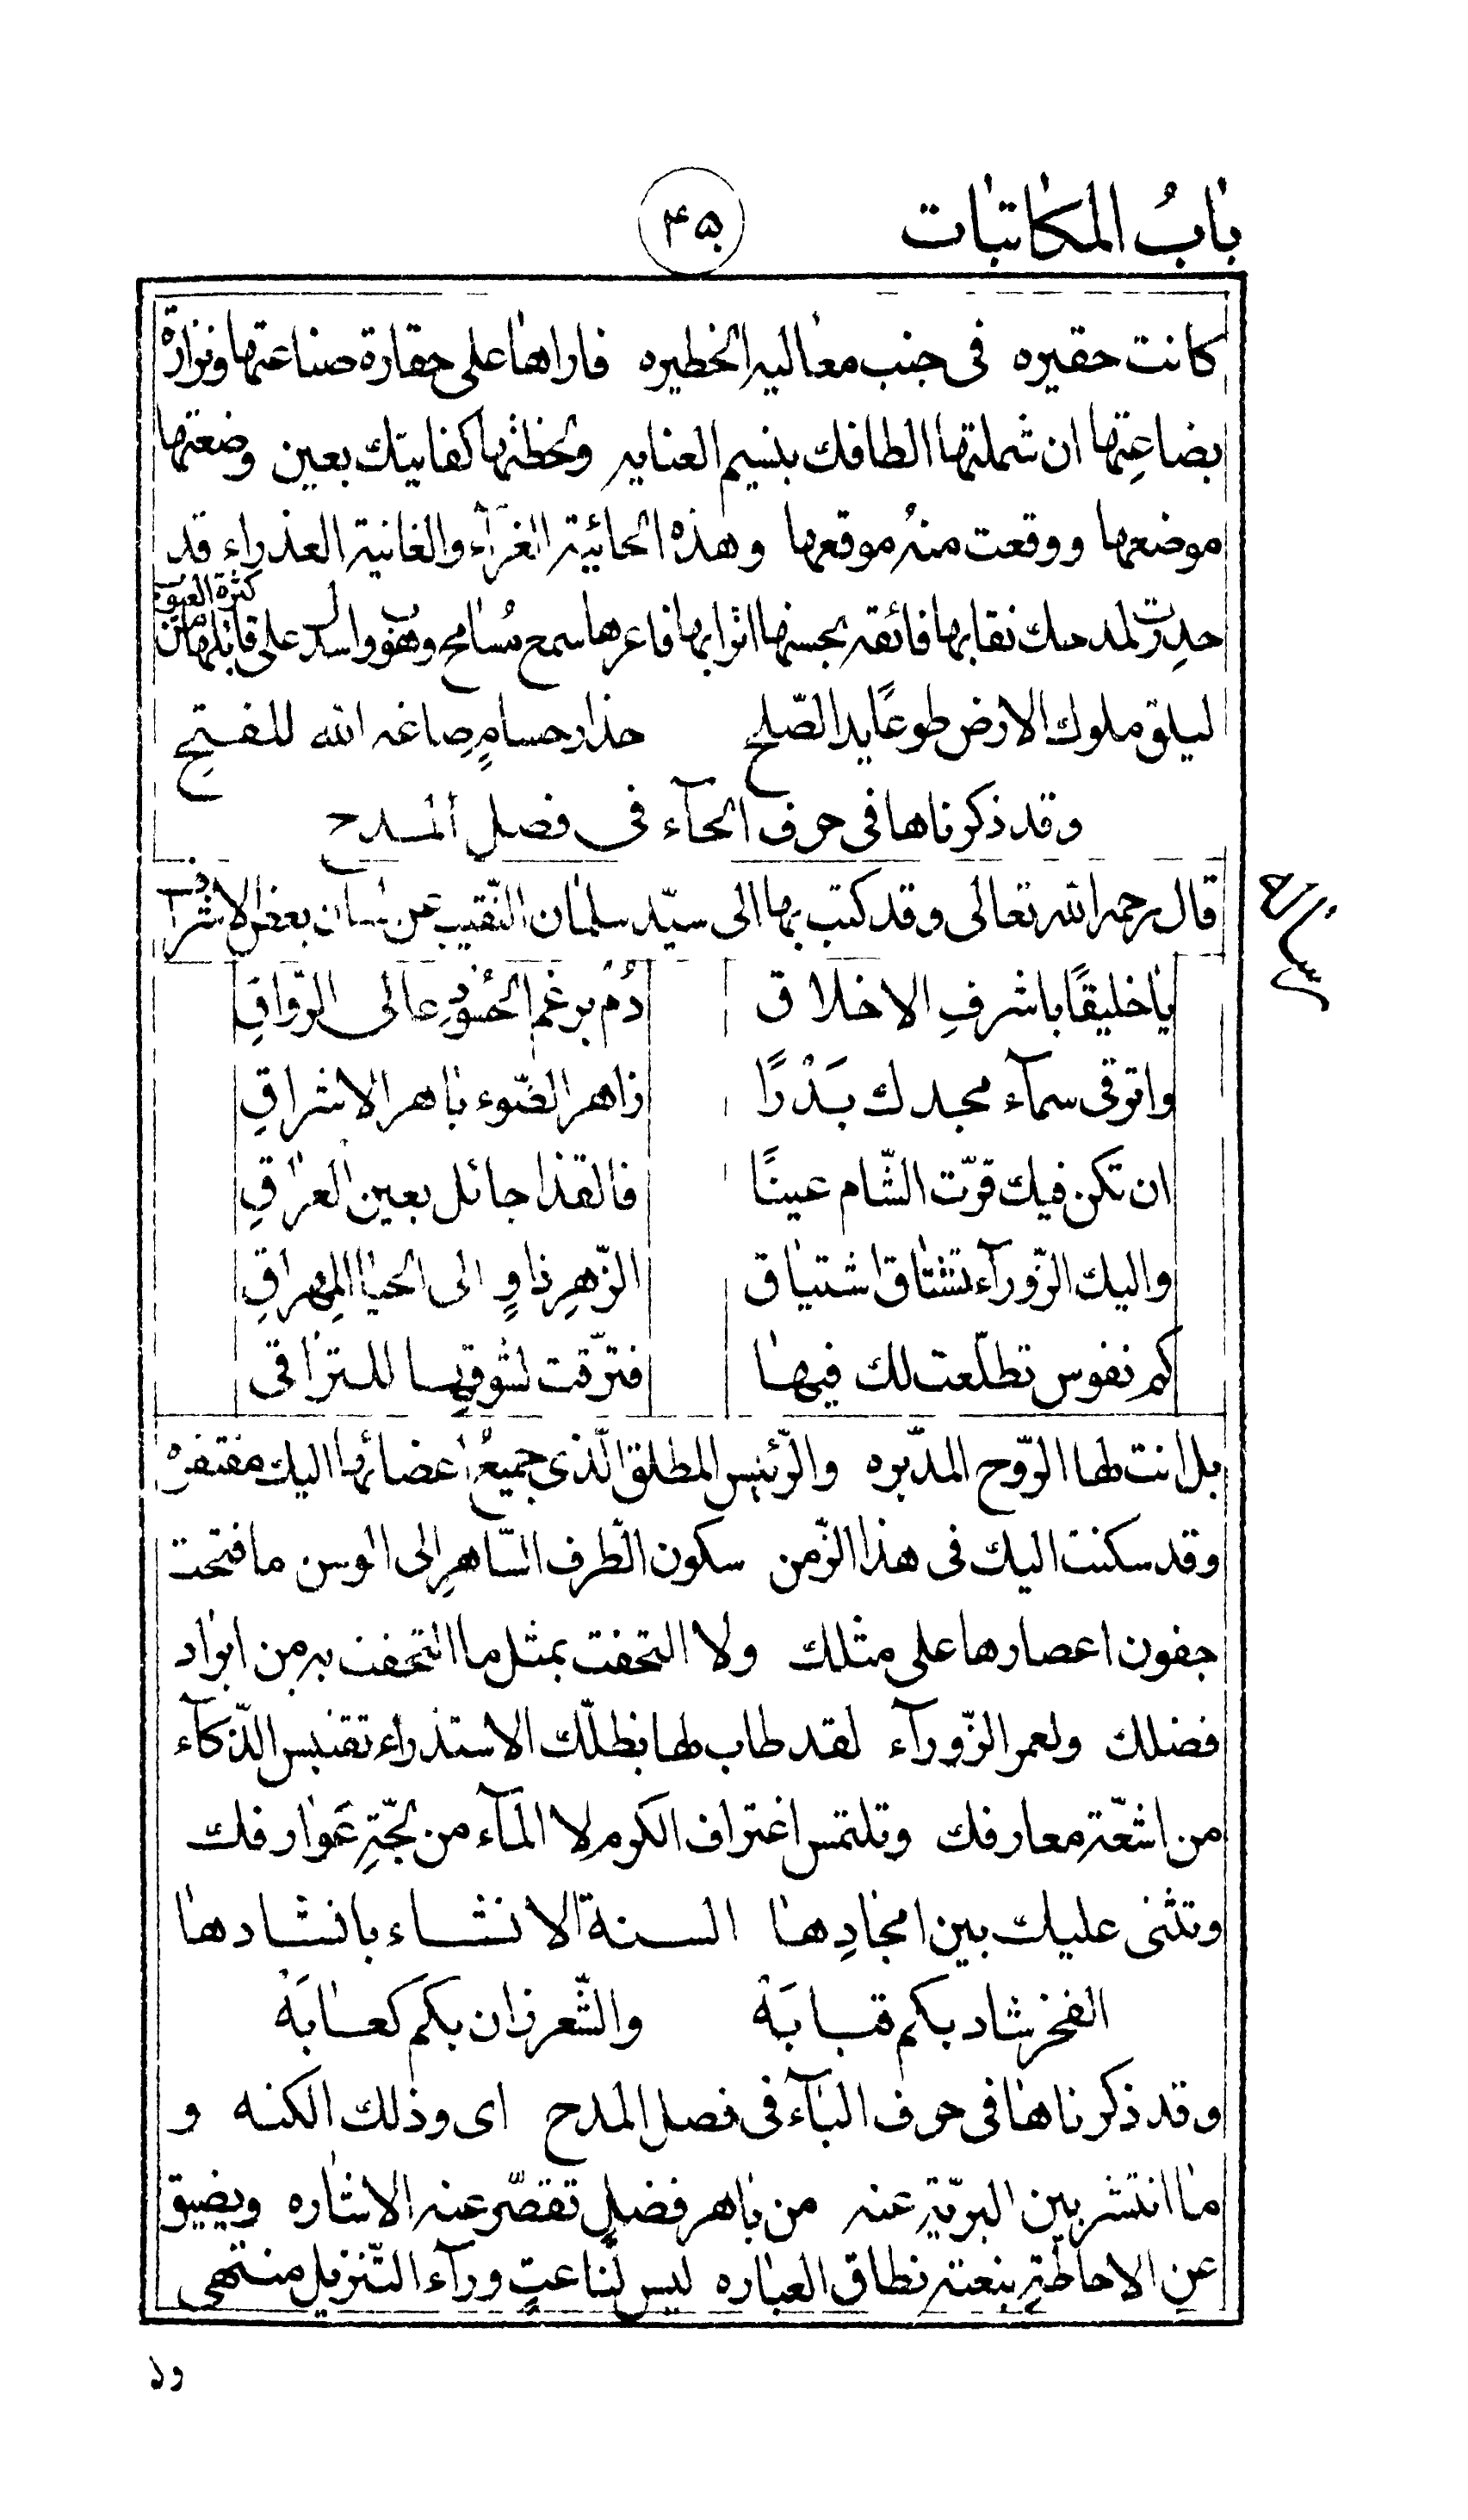 بابُ المكاتبات
۴۵
كانت حقيره فى جنب معاليه الخطيره فاراها على حقارة صناعتها ونزارة
بضاعتها ان شملتها الطافك بنسيم العنايه ولحظتها كفايتك بعين وضعتها
موضعها ووقعت منهُ موقعها وهذه الحائية الغرآء والغانية العذراء قد
حدرت لمدحك نقابها فائقه بحسنها اترابها فاعرها سمع مُسامح وهفو واسدل على قائلها من كثرة العيوب
ليلق ملوك الارض طوعًا يد الصّلح حذار حسامٍ صاغه الله للفتحِ
وقد ذكرناها فى حرف الحآء فى فصل المدح
قال رحمه الله تعالى وقد كتب بها الى سيّد سلمان النّقيب عن لسان بعض الاشراف
يا خليقًا باشرفِ الاخلاق دُم برغم الحُسّودِ عالى الرّواقِ
واترقى سمآء مجدك بَدْرًا زاهر الضّوء باهر الاشراقِ
ان تكن فيك قرّت الشّام عينًا فالقذا جائل بعين العراقِ
واليك الزّورآء تشتاق اشتياق الزّهرِ ذاوٍ الى الحيا المهراقِ
كم نفوس تطلّعت لك فيها فترّقت لشوقها للتراقى
بل انت لها الرّوح المدّبره والرّئيس المطلق الّذى جميعُ اعضائها اليك مفتقره
وقد سكنت اليك فى هذا الزّمن سكون الطّرف السّاهرِ الى الوسن ما فتحت
جفون اعصارها على مثلك ولا التحفت بمثل ما التحفت به من ابراد
فضلك ولعمر الزّورآء لقد طاب لها بظلّك الاستذراء تقتبس الذّكآء
من اشعّة معارفك وتلتمس اغتراف الكرم لا المآء من لجّةِ عَوارفك
وتثنى عليك بين امجادِها السنة الانشاء بانشادها
الفخر شاد بكم قبابَهْ والشّعر زان بكم كعابَهْ
وقد ذكرناها فى حرف البآء فى فصل المدح اى وذلك الكنه و
ما انتشر بين البريّةِ عنه من باهر فضلٍ تقصّر عنه الاشاره ويضيق
عن الاحاطةِ بنعته نطاق العباره ليس لناعتٍ ورآء التّنزيل منتهى
ولا